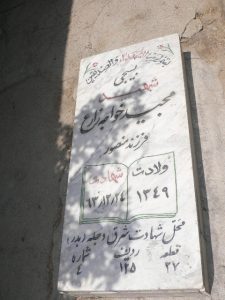 بسیجی
شهید
مجید خواجه زارع
فرزند منصور
ولادت شهادت
۱۳۴۹ ۶۳/۱۲/۲۴
محل شهادت شرق دجله (بدر)
قطعه ردیف شماره
۲۷ ۱۲۵ ۴